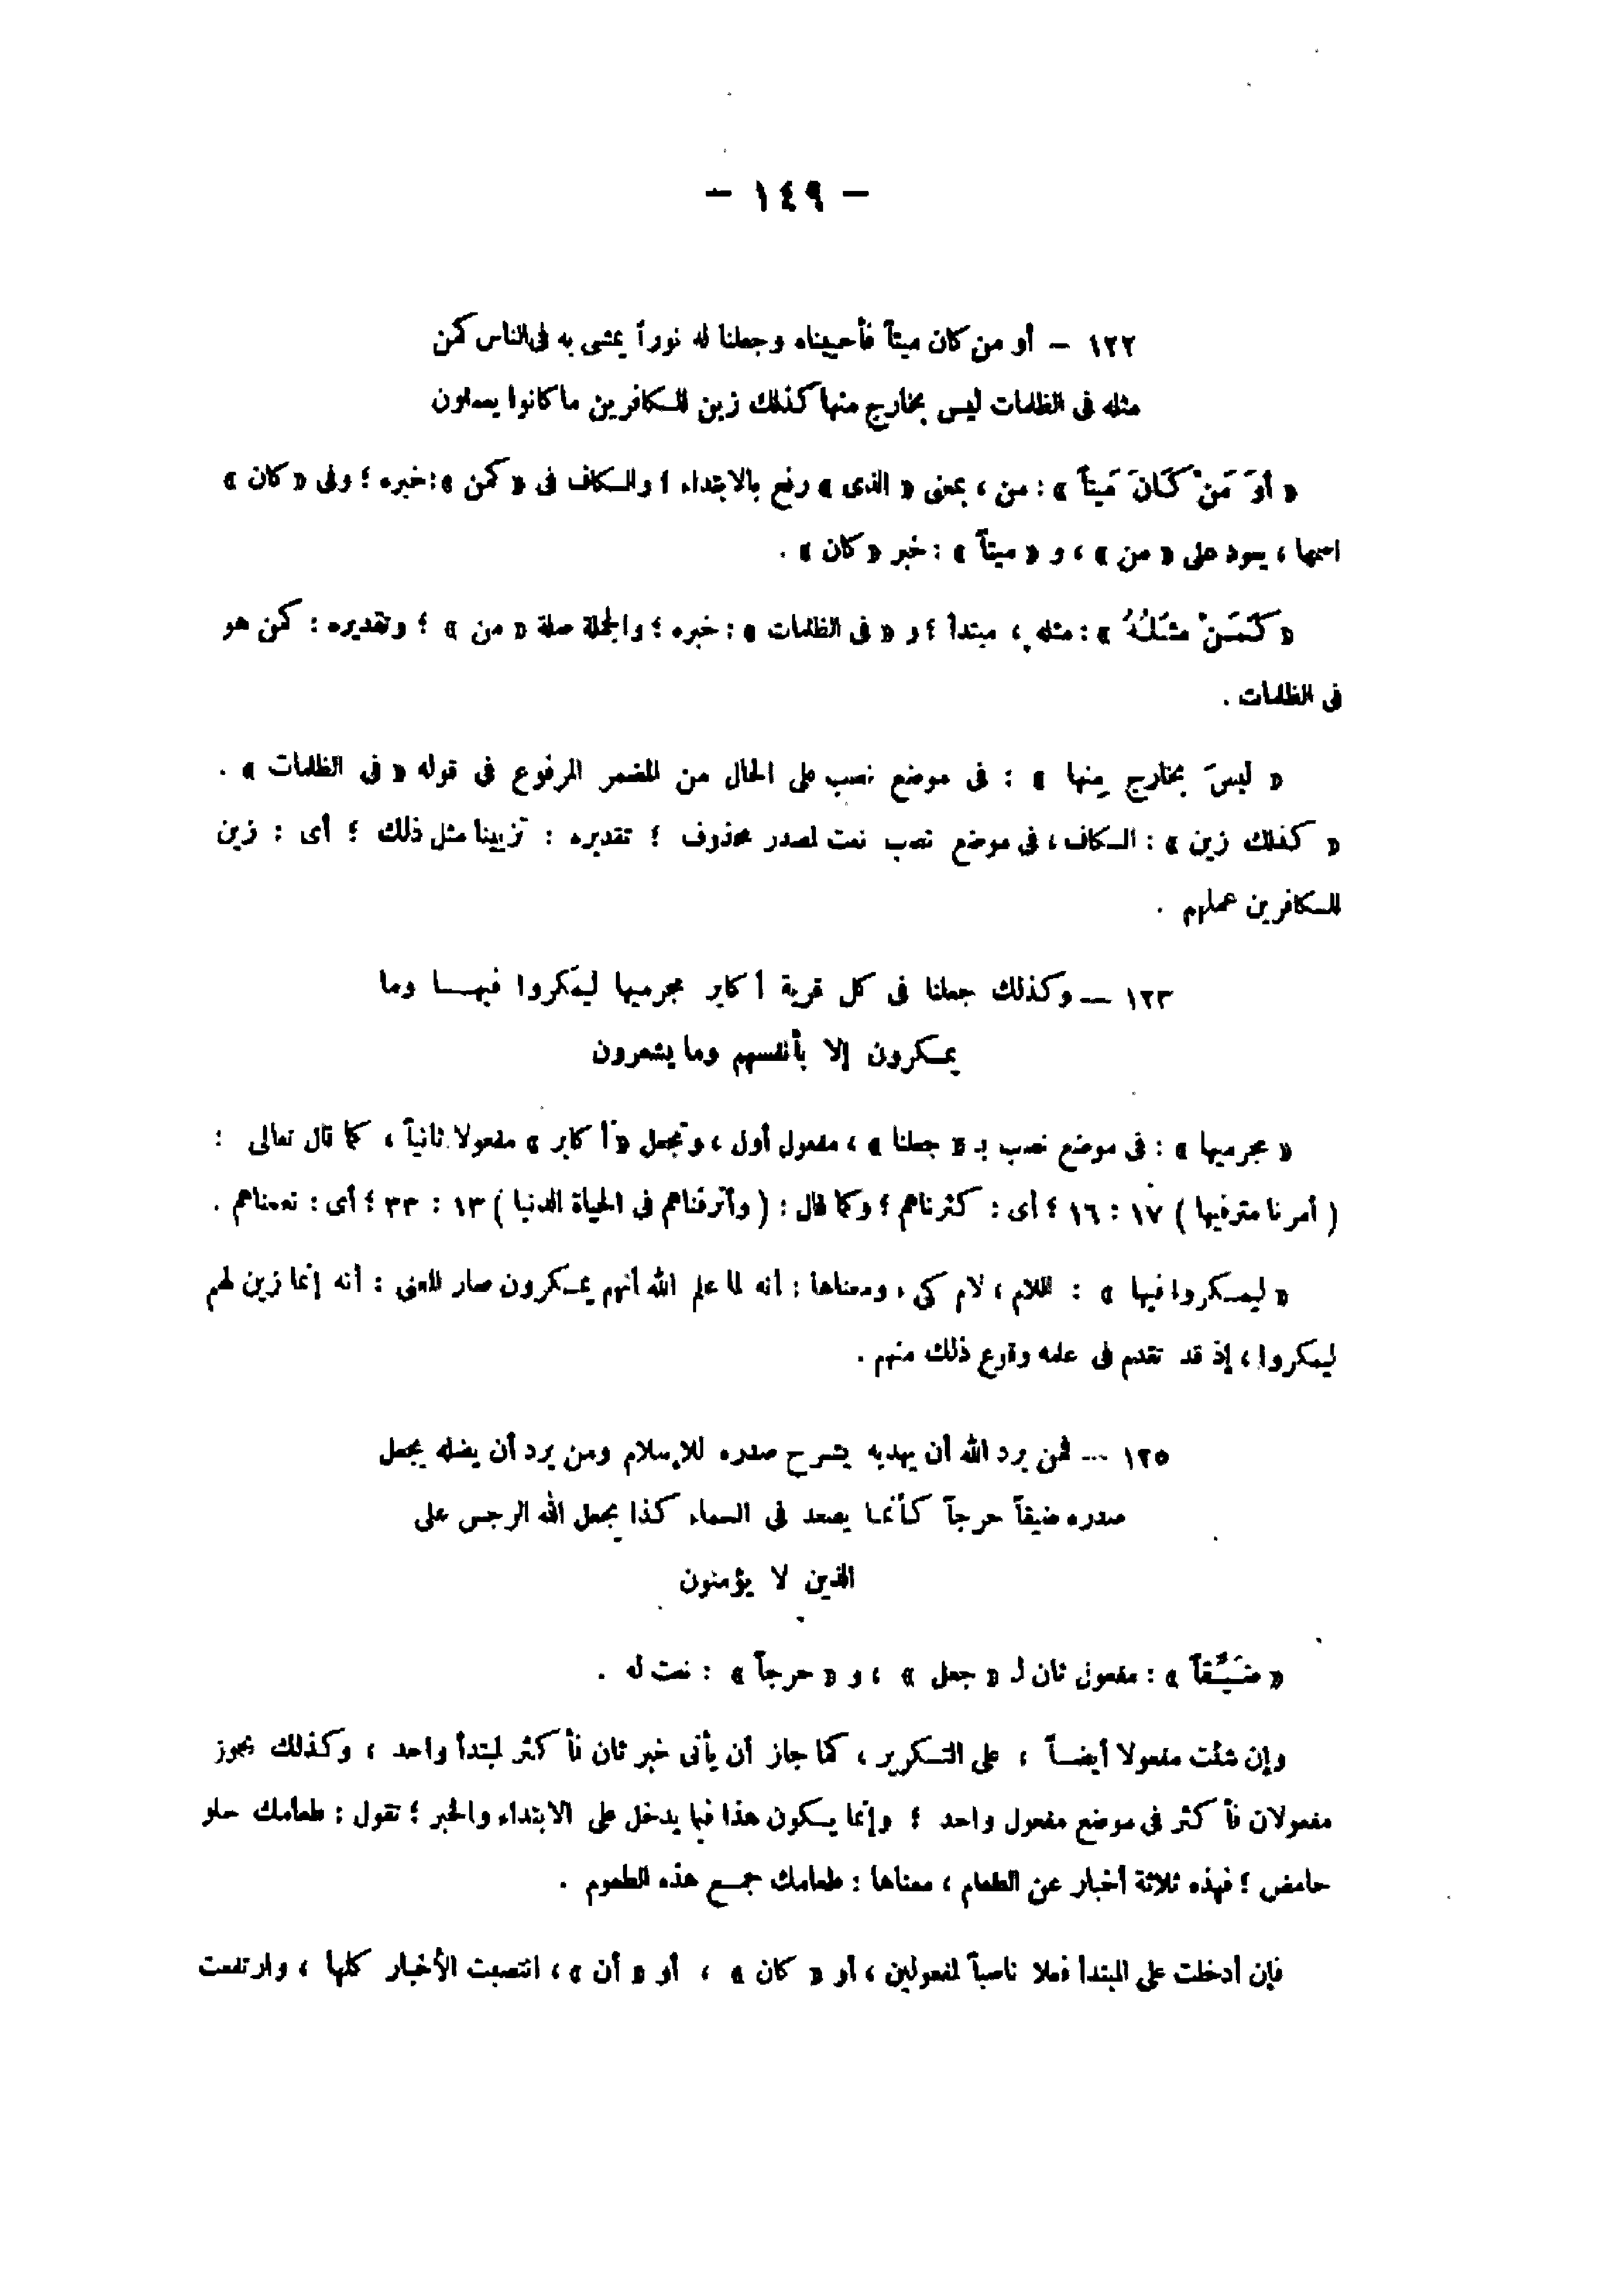 — ١٤٩ —
١٢٢ — أو من كان ميتاً فأحييناه وجعلنا له نوراً يمشى به فى الناس كمن
مثله فى الظلمات ليس بخارج منها كذلك زين للكافرين ما كانوا يعملون
« أوَ مَنْ كَانَ مَيتاً » : من ، بمعنى « الذى » رفع بالابتداء ؛ والكاف فى « كمن » : خبره ؛ وفى « كان »
اسمها ، يعود على « من » ، و « ميتاً » : خبر « كان » .
« كَمَنْ مثَلُهُ » : مثله ، مبتدأ ؛ و « فى الظلمات » : خبره ؛ والجملة صلة « من » ؛ وتقديره : كمن هو
فى الظلمات .
« ليسَ بخارج مِنها » : فى موضع نصب على الحال من المضمر المرفوع فى قوله « فى الظلمات » .
« كذلك زين » : الكاف ، فى موضع نصب نعت لمصدر محذوف ؛ تقديره : تزيينا مثل ذلك ؛ أى : زين
للكافرين عملهم .
١٢٣ — وكذلك جعلنا فى كل قرية أكابر مجرميها ليمكروا فيها وما
يمكرون إلا بأنفسهم وما يشعرون
« مجرميها » : فى موضع نصب بـ « جعلنا » ، مفعول أول ، وتجعل « أكابر » مفعولا ثانياً ، كما قال تعالى :
( أمرنا مترفيها ) ١٧ : ١٦ ؛ أى : كثرناهم ؛ وكما قال : ( وأترفناهم فى الحياة الدنيا ) ١٣ : ٣٣ ؛ أى : نعمناهم .
« ليمكروا فيها » : اللام ، لام كى ، ومعناها : أنه لما علم الله أنهم يمكرون صار المعنى : أنه إنما زين لهم
ليمكروا ، إذ قد تقدم فى علمه وقوع ذلك منهم .
١٢٥ — فمن يرد الله أن يهديه يشرح صدره للإسلام ومن يرد أن يضله يجعل
صدره ضيقاً حرجاً كأنما يصعد فى السماء كذا يجعل الله الرجس على
الذين لا يؤمنون
« ضَيِّقاً » : مفعول ثان لـ « جعل » ، و « حرجاً » : نعت له .
وإن شئت مفعولا أيضاً ، على التكرير ، كما جاز أن يأتى خبر ثان فأكثر لمبتدأ واحد ، وكذلك يجوز
مفعولان فأكثر فى موضع مفعول واحد ؛ وإنما يكون هذا فيما يدخل على الابتداء والخبر ؛ تقول : طعامك حلو
حامض ؛ فهذه ثلاثة أخبار عن الطعام ، معناها : طعامك جمع هذه الطعوم .
فإن أدخلت على المبتدأ فعلا ناصباً لمفعولين ، أو « كان » ، أو « أن » ، انتصبت الأخبار كلها ، وارتفعت